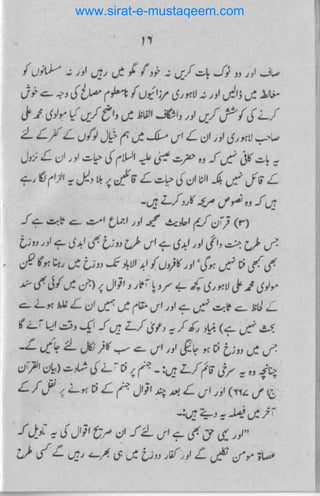 www.sirat-e-mustaqeem.com
۱۶
صاف اور دو ٹوک بات کریں نہ خود گو مگو میں رہیں اور نہ مسلمانوں کو
مغالطہ میں ڈالیں اور نہ لاہوری مرزائیوں کو نامعلوم مصالح کی وجہ سے خوش
کرنے کی کوشش کریں اور واشگاف الفاظ میں واضح کریں کیا مولوی محمد علی
صاحب لاہوری اور ان کے اس مسلک میں ہم خیال لوگوں کے کفر کے لئے
یہ بات کافی نہیں کہ وہ حضرت عیسیٰ علیہ السلام کی حیات اور ان کے نزول
کے قائل نہیں بلکہ الٹا ان کی حیات کے قائلین پر بلا دلیل یہ الزام لگا رہے
ہیں کہ وہ نصوص صریحہ کو رد کرتے ہیں۔
(۳) قرآن کریم احادیث صحیحہ اور اجماع امت سے ثابت ہے کہ
جس طرح جنت دائمی اور ابدی ہے اسی طرح دوزخ بھی ابدی ہے اور دوزخ
کبھی بھی فنا نہیں ہوگی اور کافروں کو ابد الآباد تک دوزخ میں رہنا ہوگا لیکن
مولوی محمد علی لاہوری نے کچھ بے سروپا آثار و اقوال پر (جن میں کوئی بھی سند
کے لحاظ سے ثابت نہیں ہے اور اس مقام میں ہمیں ان کے غلط ہونے سے
بحث نہیں ہے) بنیاد رکھ کر یہ دعویٰ کرتے ہیں کہ ایک وقت ایسا آئے گا
جس میں دوزخ فنا ہو جائیگی اور اس سے سب کافر نکال لئے جائیں گے۔
چنانچہ وہ یہ سرخی قائم کرتے ہیں :۔ جہنم پر فنا آنے کی شہادت (بیان القرآن
ج ص ۶۶۷) اور اس کے بعد چند اقوال جہنم کے فنا ہونے پر نقل کر کے
آخر میں یہ فیصلہ دیتے ہیں:۔
"اور یہی حق بھی ہے اس لئے کہ ان صریح اقوال کی یہ تاویل کہ
عصاۃ مومن نکلیں گے اور کفار دوزخ میں ہی بھرے رہیں گے کسی طرح